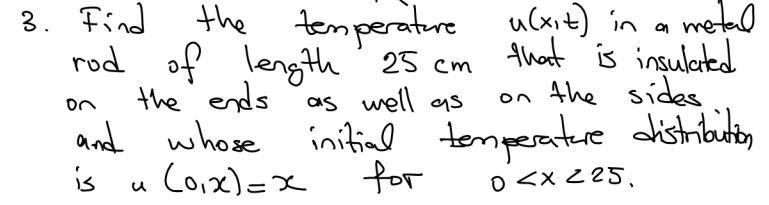 3. Find the temperature u(x,t) in a metal
rod of length 25 cm that is insulated
on the ends as well as on the sides
and whose initial temperature distribution
is u(0,x)=x for 0<x<25.